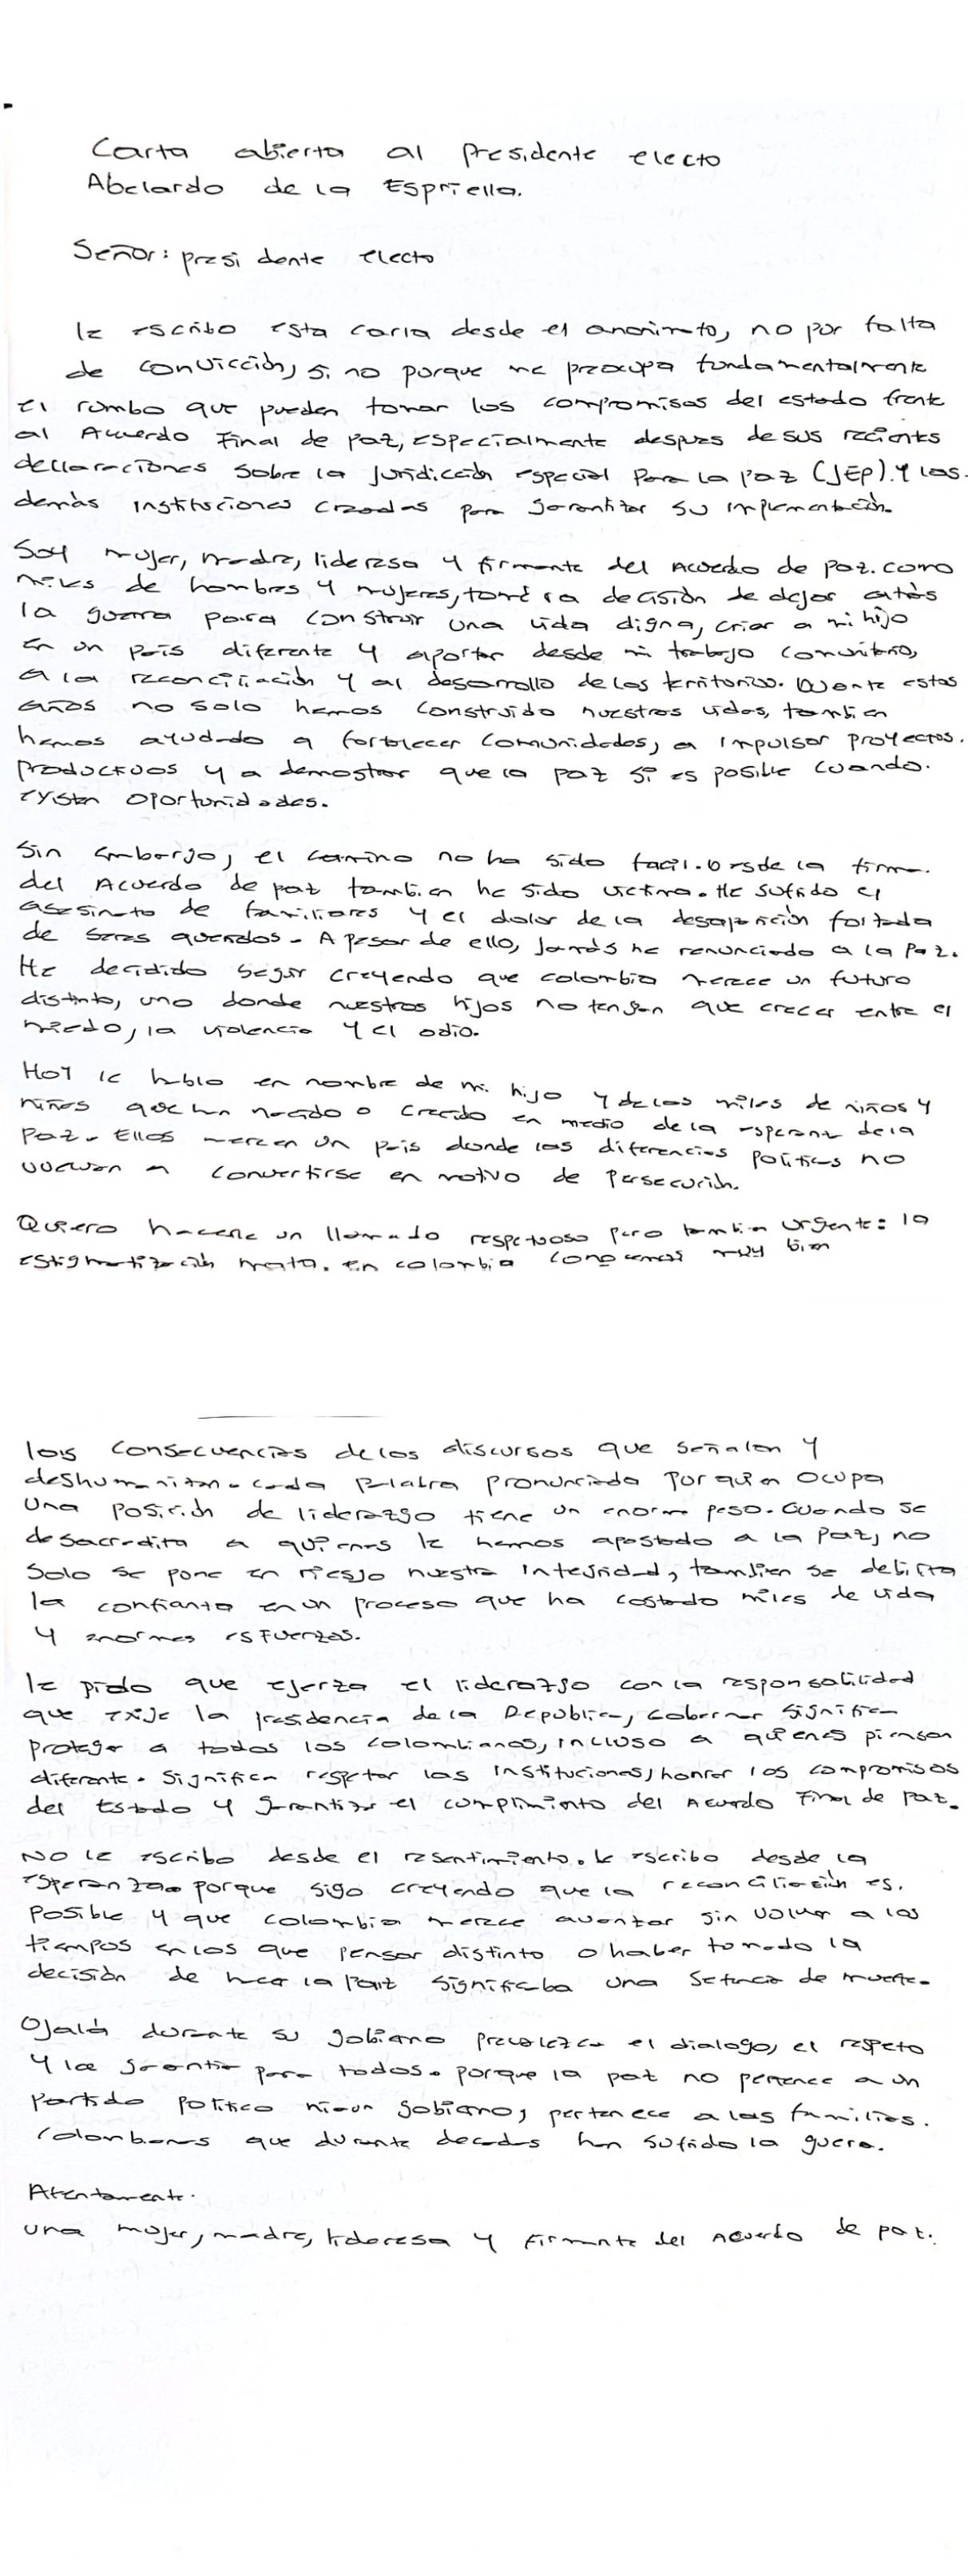 Carta abierta al presidente electo
Abelardo de la Espriella.
Señor: presidente electo
le escribo esta carta desde el anonimato, no por falta
de convicción, si no porque me preocupa fundamentalmente
el rumbo que pueden tomar los compromisos del estado frente
al Acuerdo Final de paz, especialmente despues de sus recientes
declaraciones sobre la juridicción especial para la paz (JEP). Y las.
demás instituciones creadas para garantizar su implementación.
Soy mujer, madre, lideresa y firmante del Acuerdo de paz. como
miles de hombres y mujeres, tomé la decisión de dejar atrás
la guerra para construir una vida digna, criar a mi hijo
en un país diferente y aportar desde mi trabajo comunitario,
a la reconciliación y al desarrollo de los territorios. Durante estos
años no solo hemos construido nuestras vidas, tambien
hemos ayudado a fortalecer comunidades, a impulsar proyectos.
productivos y a demostrar que la paz si es posible cuando.
existen oportunidades.
Sin embargo, el camino no ha sido facil. Desde la firma.
del Acuerdo de paz tambien he sido victima. He sufrido el
asesinato de familiares y el dolor de la desaparición forzada
de seres queridos. A pesar de ello, jamás he renunciado a la paz.
He decidido seguir creyendo que colombia merece un futuro
distinto, uno donde nuestros hijos no tengan que crecer entre el
miedo, la violencia y el odio.
Hoy le hablo en nombre de mi hijo y de los miles de niños y
niñas que han nacido o crecido en medio de la esperanza de la
paz. Ellos merecen un país donde las diferencias políticas no
vuelvan a convertirse en motivo de persecución.
Quiero hacerle un llamado respetuoso pero tambien urgente: la
estigmatización mata. en colombia conocemos muy bien
las consecuencias de los discursos que señalan y
deshumanizan. cada palabra pronunciada por quien ocupa
una posición de liderazgo tiene un enorme peso. Cuando se
desacredita a quienes le hemos apostado a la paz, no
solo se pone en riesgo nuestra integridad, tambien se debilita
la confianza en un proceso que ha costado miles de vida
y enormes esfuerzos.
le pido que ejerza el liderazgo con la responsabilidad
que exije la presidencia de la Republica, Gobernar significa
proteger a todos los colombianos, incluso a quienes piensan
diferente. Significa respetar las instituciones, honrar los compromisos
del Estado y garantizar el cumplimiento del Acuerdo Final de paz.
No le escribo desde el resentimiento. le escribo desde la
esperanza. porque sigo creyendo que la reconciliación es.
posible y que colombia merece avanzar sin volver a los
tiempos en los que pensar distinto o haber tomado la
decisión de hacer la paz significaba una setencia de muerte.
Ojalá durante su gobierno prevalezca el dialogo, el respeto
y la garantia para todos. porque la paz no pertenece a un
partido politico ni a un gobierno, pertenece a las familias.
Colombianas que durante decadas han sufrido la guerra.
Atentamente.
una mujer, madre, lideresa y firmante del Acuerdo de paz.